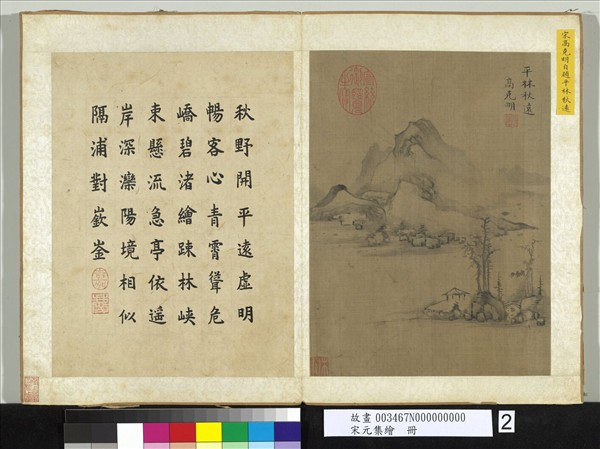 宋高克明自題平林秋遠
平林秋遠
高克明
秋野開平遠虛明
暢客心青霄聳危
嶠碧渚繪踈林峽
束懸流急亭依遥
岸深灤陽境相似
隔浦對嶔崟
故畫 003467N000000000
宋元集繪 冊
2